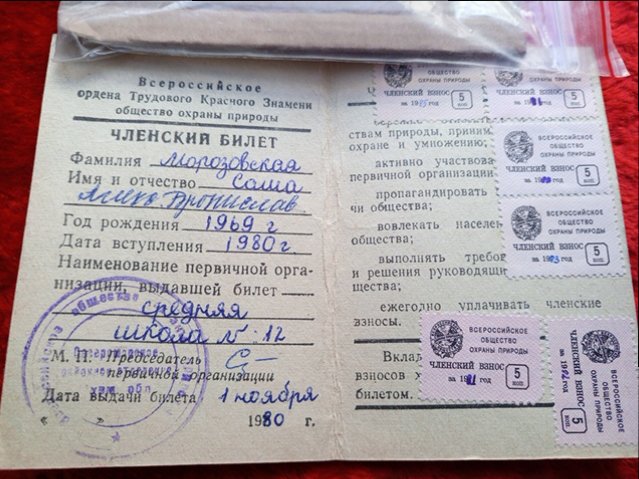 Всероссийское
ордена Трудового Красного Знамени
общество охраны природы
ЧЛЕНСКИЙ БИЛЕТ
Фамилия Морозовская
Имя и отчество Саша
Год рождения 1969 г
Дата вступления 1980 г
Наименование первичной орга-
низации, выдавшей билет
средняя
школа № 12
М. П. Председатель
первичной организации
Дата выдачи билета 1 ноября
« » 1980 г.
ОБЩЕСТВО
ОХРАНЫ ПРИРОДЫ
ЧЛЕНСКИЙ ВЗНОС
за 19 год
5
коп
ОБЩЕСТВО
ОХРАНЫ ПРИРОДЫ
ЧЛЕНСКИЙ ВЗНОС
за 19 год
5
коп
ствам природы, приним
охране и умножению;
активно участвова
первичной организации
пропагандировать
чи общества;
вовлекать населен
общества;
выполнять требов
и решения руководящи
щества;
ежегодно уплачивать членские
взносы.
Вклад
взносов х
билетом.
ВСЕРОССИЙСКОЕ
ОБЩЕСТВО
ОХРАНЫ ПРИРОДЫ
ЧЛЕНСКИЙ ВЗНОС
за 19 год
5
коп
ВСЕРОССИЙСКОЕ
ОБЩЕСТВО
ОХРАНЫ ПРИРОДЫ
ЧЛЕНСКИЙ ВЗНОС
за 1983 год
5
коп
ВСЕРОССИЙСКОЕ
ОБЩЕСТВО
ОХРАНЫ ПРИРОДЫ
ЧЛЕНСКИЙ ВЗНОС
за 1981 год
5
коп
ВСЕРОССИЙСКОЕ
ОБЩЕСТВО
ОХРАНЫ ПРИРОДЫ
ЧЛЕНСКИЙ ВЗНОС
за 1982 год
5
коп